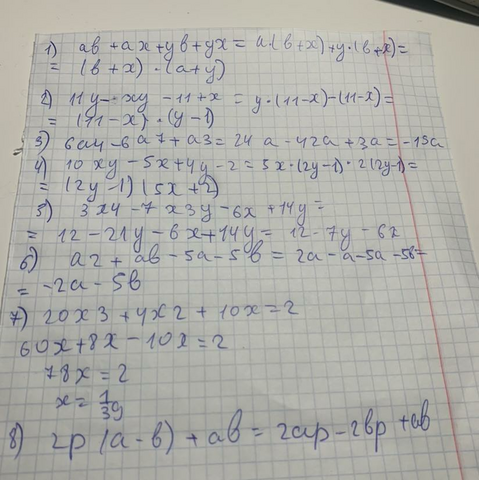 1) ab + ax + yb + yx = a·(b+x) + y·(b+x) =
= (b+x)·(a+y)
2) 11y - xy - 11 + x = y·(11-x) - (11-x) =
= (11-x)·(y-1)
3) 6a4 - 6a7 + a3 = 24a - 42a + 3a = -15a
4) 10xy - 5x + 4y - 2 = 5x·(2y-1)·2(2y-1) =
= (2y-1)(5x+2)
5) 3x4 - 7x3y - 6x + 14y =
= 12 - 21y - 6x + 14y = 12 - 7y - 6x
6) a2 + ab - 5a - 5b = 2a - a - 5a - 5b =
= -2a - 5b
7) 20x3 + 4x2 + 10x = 2
60x + 8x - 10x = 2
78x = 2
x = 1/39
8) 2p(a-b) + ab = 2ap - 2bp + ab